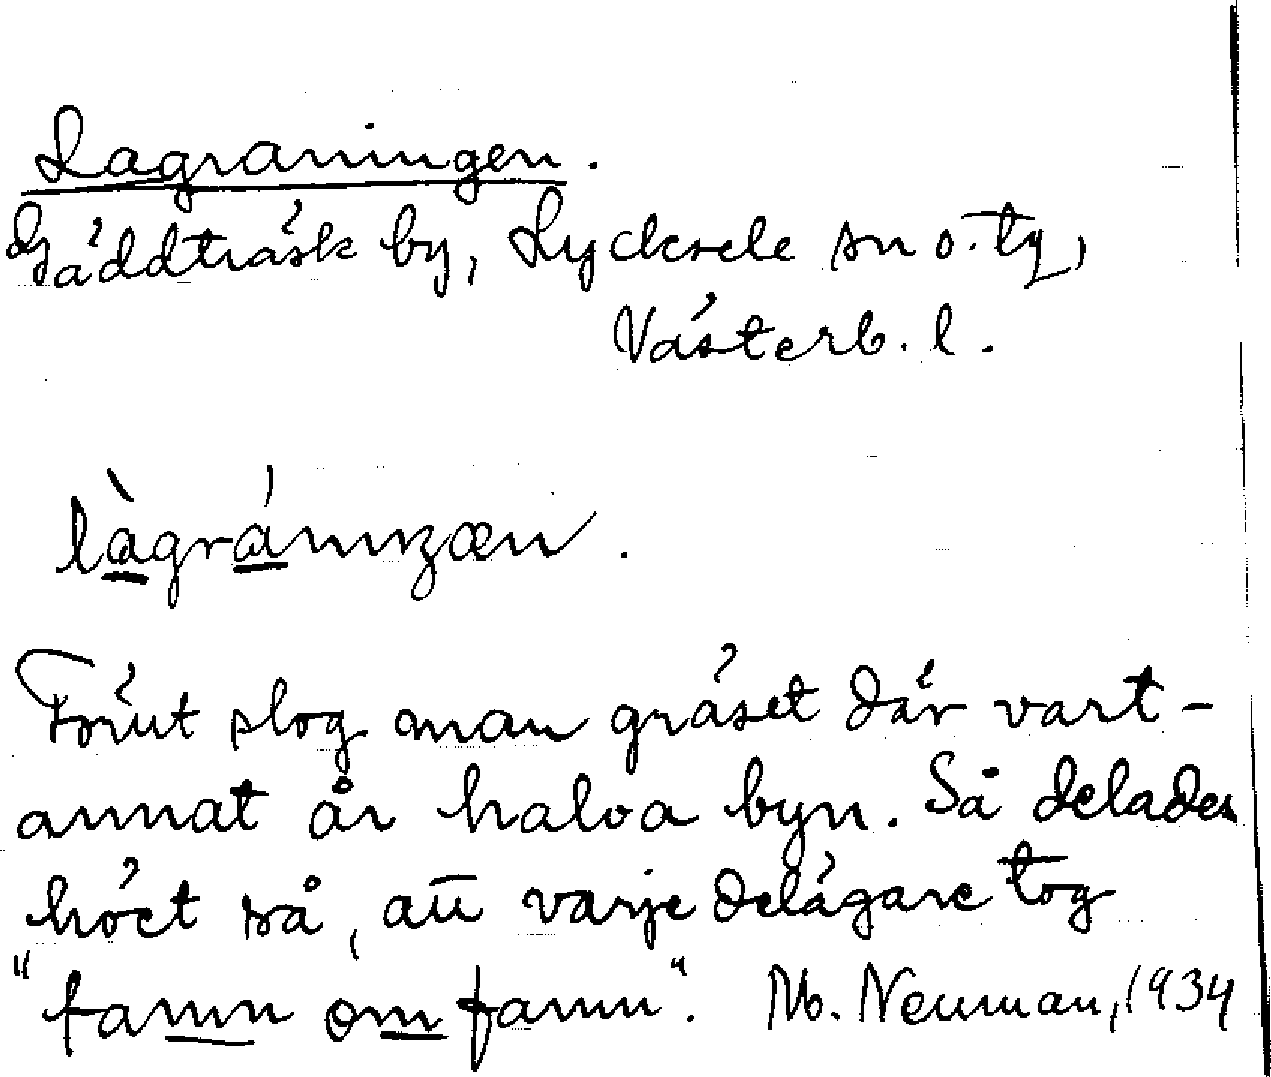 Lagraningen.
Gäddträsk by, Lycksele sn o. tg,
Västerb. l.
Förut slog man gräset där vart-
annat år halva byn. Så delades
höet så, att varje delägare tog
"famn om famn". M. Neuman, 1934